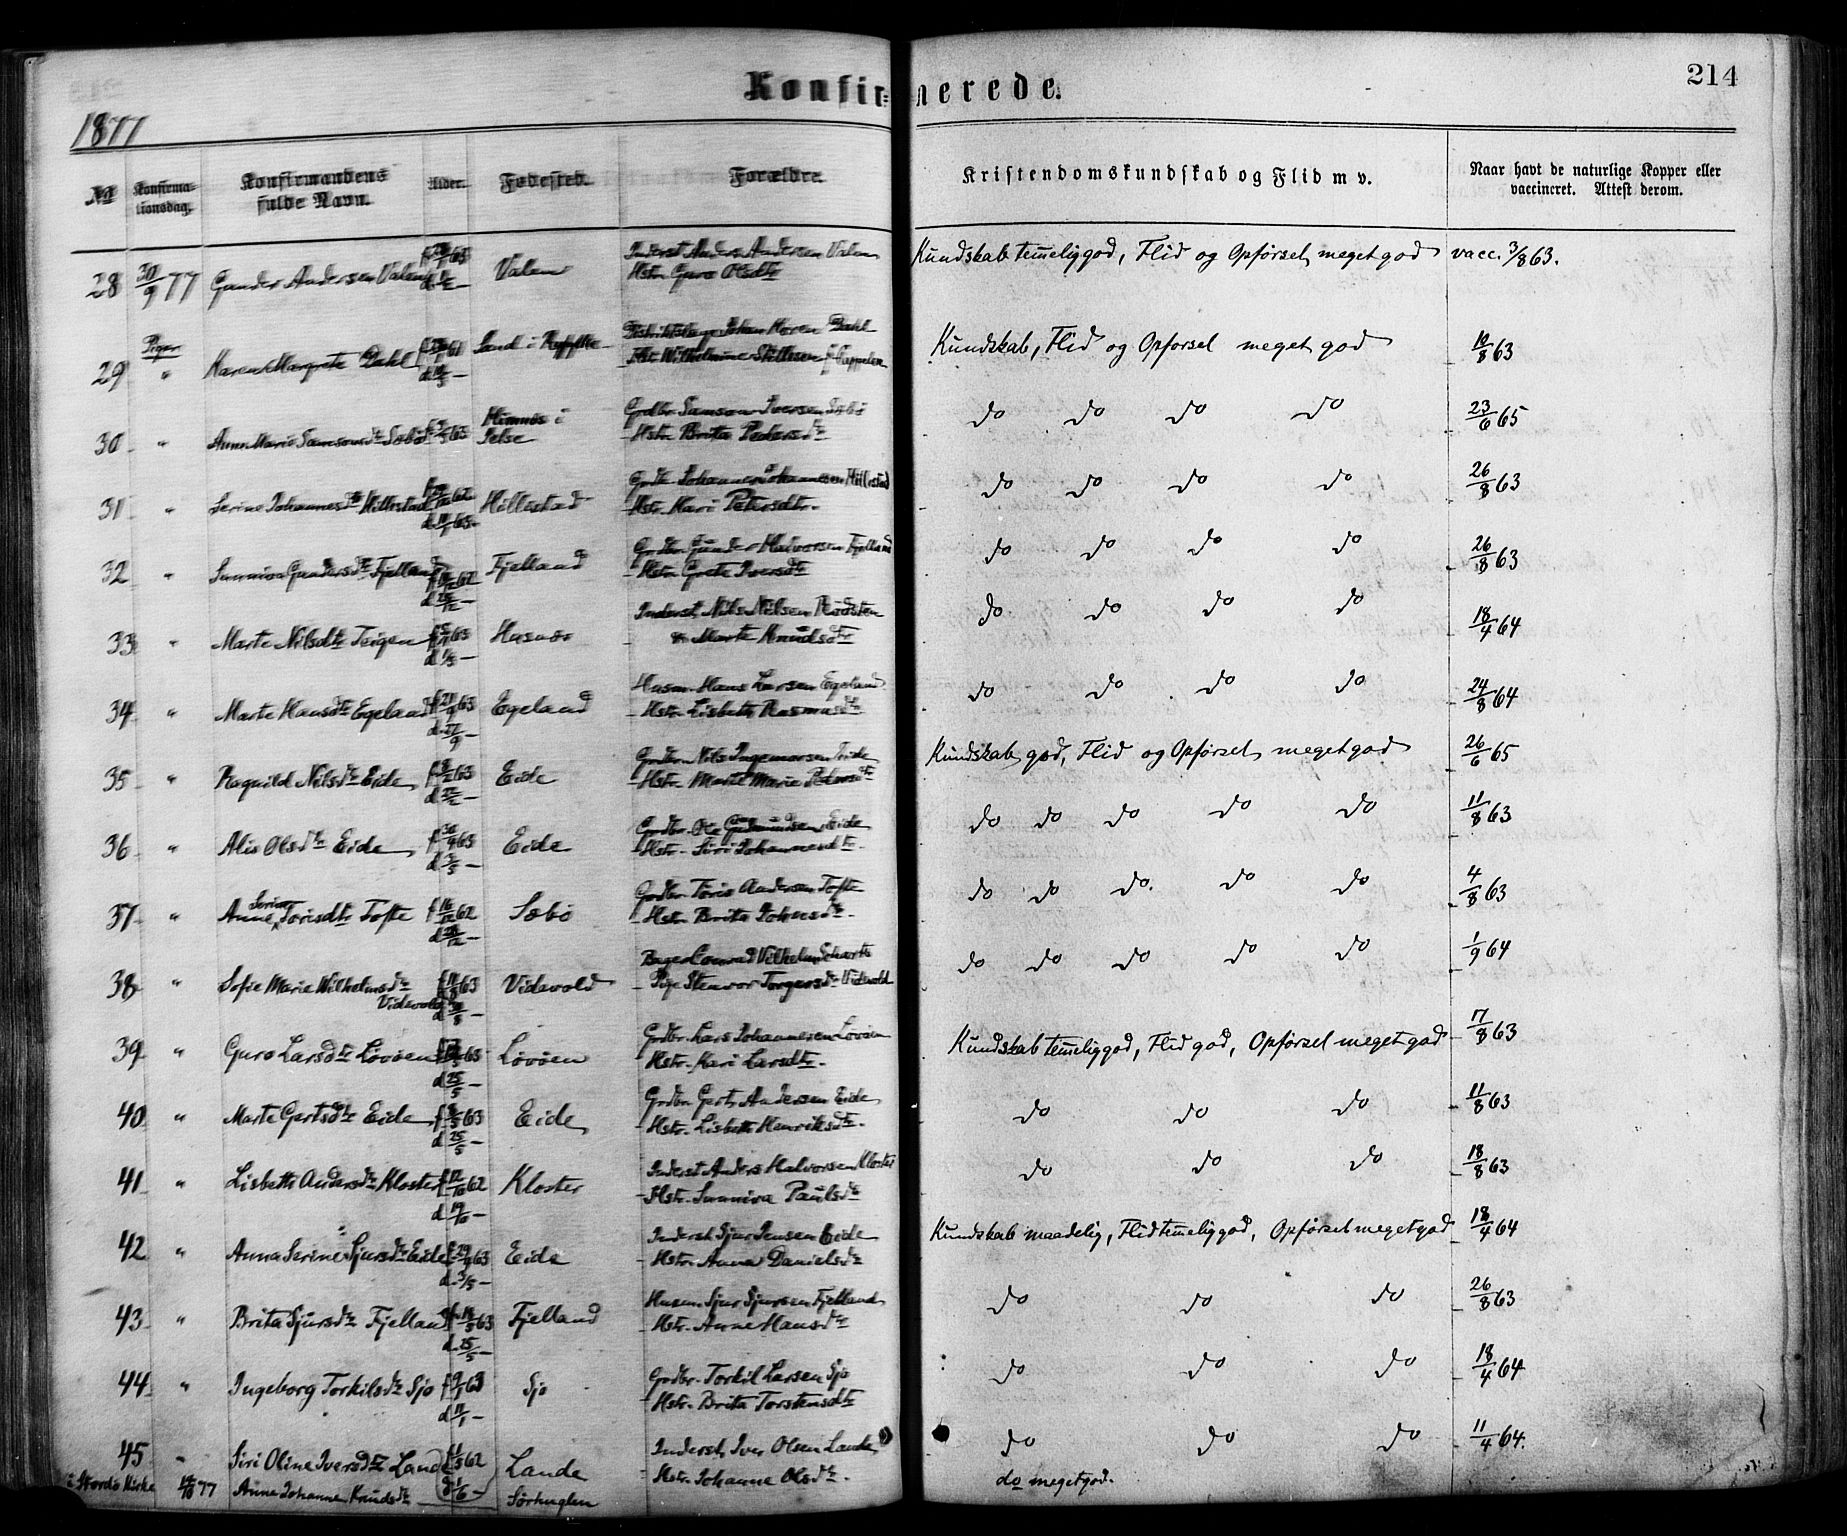 Konfirmerede.
214
1877
No
Konfirma-
tionsdag.
Konfirmandens
fulde Navn.
Alder.
Fødested.
Forældre.
Kristendomskundskab og Flid m v.
Naar havt de naturlige Kopper eller
vaccineret. Attest derom.
28 30/9 77 Gunder Andersen Valen Valen
Inderst Anders Andersen Valen
Hstr. Guro Olsdtr
Kundskab temeliggod, Flid og Opførsel megetgod vacc. 3/8 63.
Piger
29 " Maren Margrete Dahl Sand i
Distriktslæge Johan Dahl
Hstr. Wilhelmine f. Cappelen
Kundskab, Flid og Opførsel meget god 10/8 63
30 " Anne Marie Samsonsdtr Søbø
Grdbr. Samson Iversen Søbø
Hstr. Brita Pedersdtr
do do do do 23/6 65
31 " Serine Johannesdtr Hillestad Hillestad
Grdbr. Johannes Johannesen Hillestad
Hstr. Mari Petersdtr.
do do do do 26/8 63
32 " Sunniva Gundersdtr Fjelland Fjelland
Grdbr. Gunder Halvorsen Fjelland
Hstr. Grete Iversdtr
do do do do 26/8 63
33 " Marte Nilsdtr Teigen
Inderst Nils Nilsen
Marte Knudsdtr
do do do do 18/4 64
34 " Marte Hansdtr Egeland Egeland
Husm. Hans Larsen Egeland
Hstr. Lisbeth Rasmusdtr
do do do do 24/8 64
35 " Ragnild Nilsdtr Eide Eide
Grdbr. Nils Ingemarsen Eide
Hstr. Marie Pedersdtr
Kundskab god, Flid og Opførsel megetgod 26/6 65
36 " Alis Olsdtr Eide f 30/4 63 Eide
d 3/5 -
Grdbr. Ole Gudmundsen Eide
Hstr. Siri Johannesdtr.
do do do do do 11/8 63
37 " Anne Serine Torisdtr Tofte f 16/12 62 Søbø
d 28/12 -
Grdbr. Toris Andersen Tofte
Hstr. Brita Johnsdtr.
do do do. do do 4/8 63
38 " Sofie Marie Wilhelmsdtr Videvold
Videvold
Bager Conrad Vilhelm
Pige Stenvor Torgersdtr Videvold
do do do do do 1/9 64
39 " Guro Larsdtr Løvøen Løvøen
d 25/5 -
Grdbr. Lars Johannesen Løvøen
Hstr. Kari Larsdtr.
Kundskab temeliggod, Flid god, Opførsel megetgod 17/8 63
40 " Marte Gertsdtr Eide f 8/5 63 Eide
d 25/5 -
Grdbr. Gert Andersen Eide
Hstr. Lisbeth Henriksdtr.
do do do 11/8 63
41 " Lisbeth Andersdtr Kloster f 12/10 62 Kloster
d 19/10 -
Inderst Anders Halvorsen Kloster
Hstr. Sunniva Paulsdtr
do do do 18/8 63
42 " Anna Serine Sjursdtr Eide f 29/4 63 Eide
d. 3/5 -
Inderst Sjur Jensen Eide
Hstr. Anna Danielsdtr
Kundskab maadelig, Flid temeliggod, Opførsel megetgod 18/4 64
43 " Brita Sjursdtr Fjelland Fjelland
d. 25/5 -
Husm. Sjur Sjursen Fjelland
Hstr. Anne Hansdtr
do do do 26/8 63
44 " Ingeborg Torkilsdtr Sjo f 9/1 63 Sjo
d 11/1 -
Grdbr. Torkil Larsen Sjo
Hstr. Brita Torstensdtr
do do do 18/4 64
45 " Siri Oline Iversdtr Lande Lande
Inderst Iver Olsen Lande
Hstr. Johanne Olsdtr.
do do do 11/4 64.
i Stordø Kirke 77 Anne Johanne Knudsdtr Sørhuglen
do megetgod.